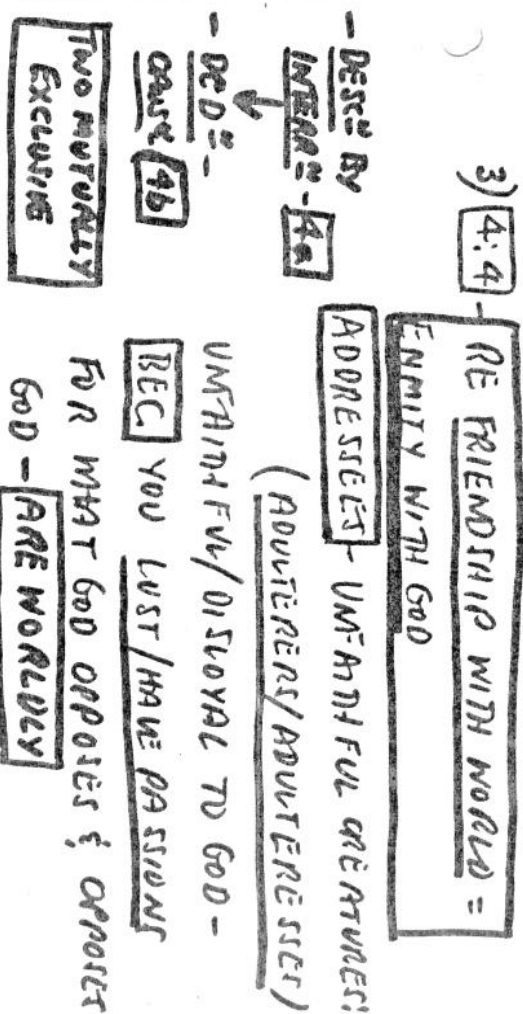 3) 4:4 - RE FRIENDSHIP WITH WORLD =
ENMITY WITH GOD
ADDRESSEES - UNFAITHFUL CREATURES!
(ADULTERERS/ADULTERESSES)
UNFAITHFUL/DISLOYAL TO GOD -
BEC YOU LUST/HAVE PASSIONS
FOR WHAT GOD OPPOSES & OPPOSES
GOD - ARE WORLDLY
- DESCN BY
INTERRN - 4a
- DCDN -
CAUSE 4b
TWO MUTUALLY
EXCLUSIVE